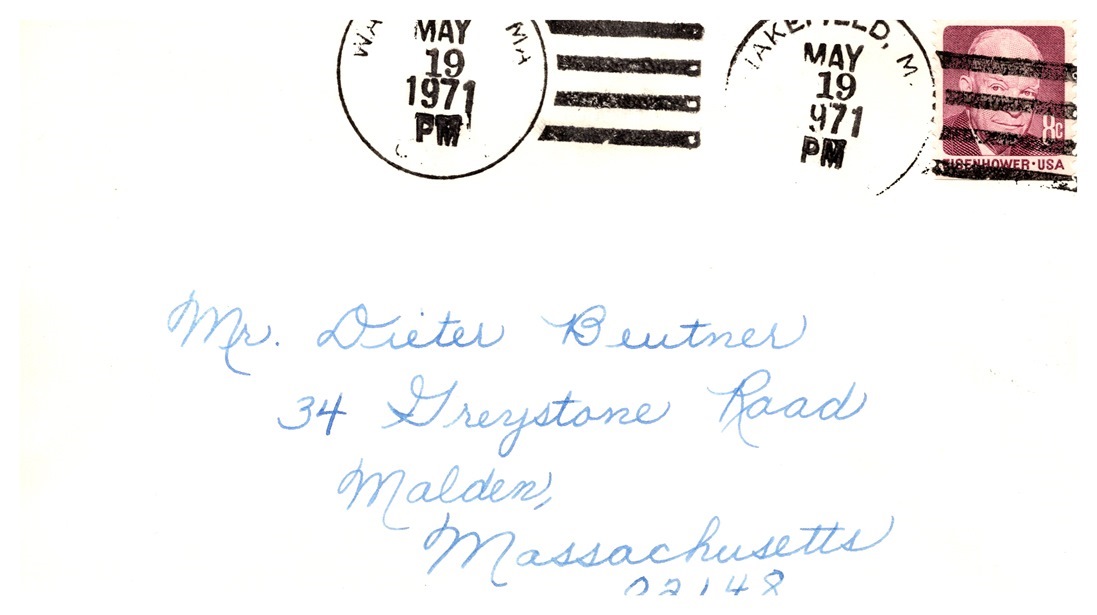 MAY
19
1971
PM
WAKEFIELD, M
MAY
19
971
PM
8c
EISENHOWER·USA
Mr. Dieter Beutner
34 Greystone Road
Malden,
Massachusetts
02148